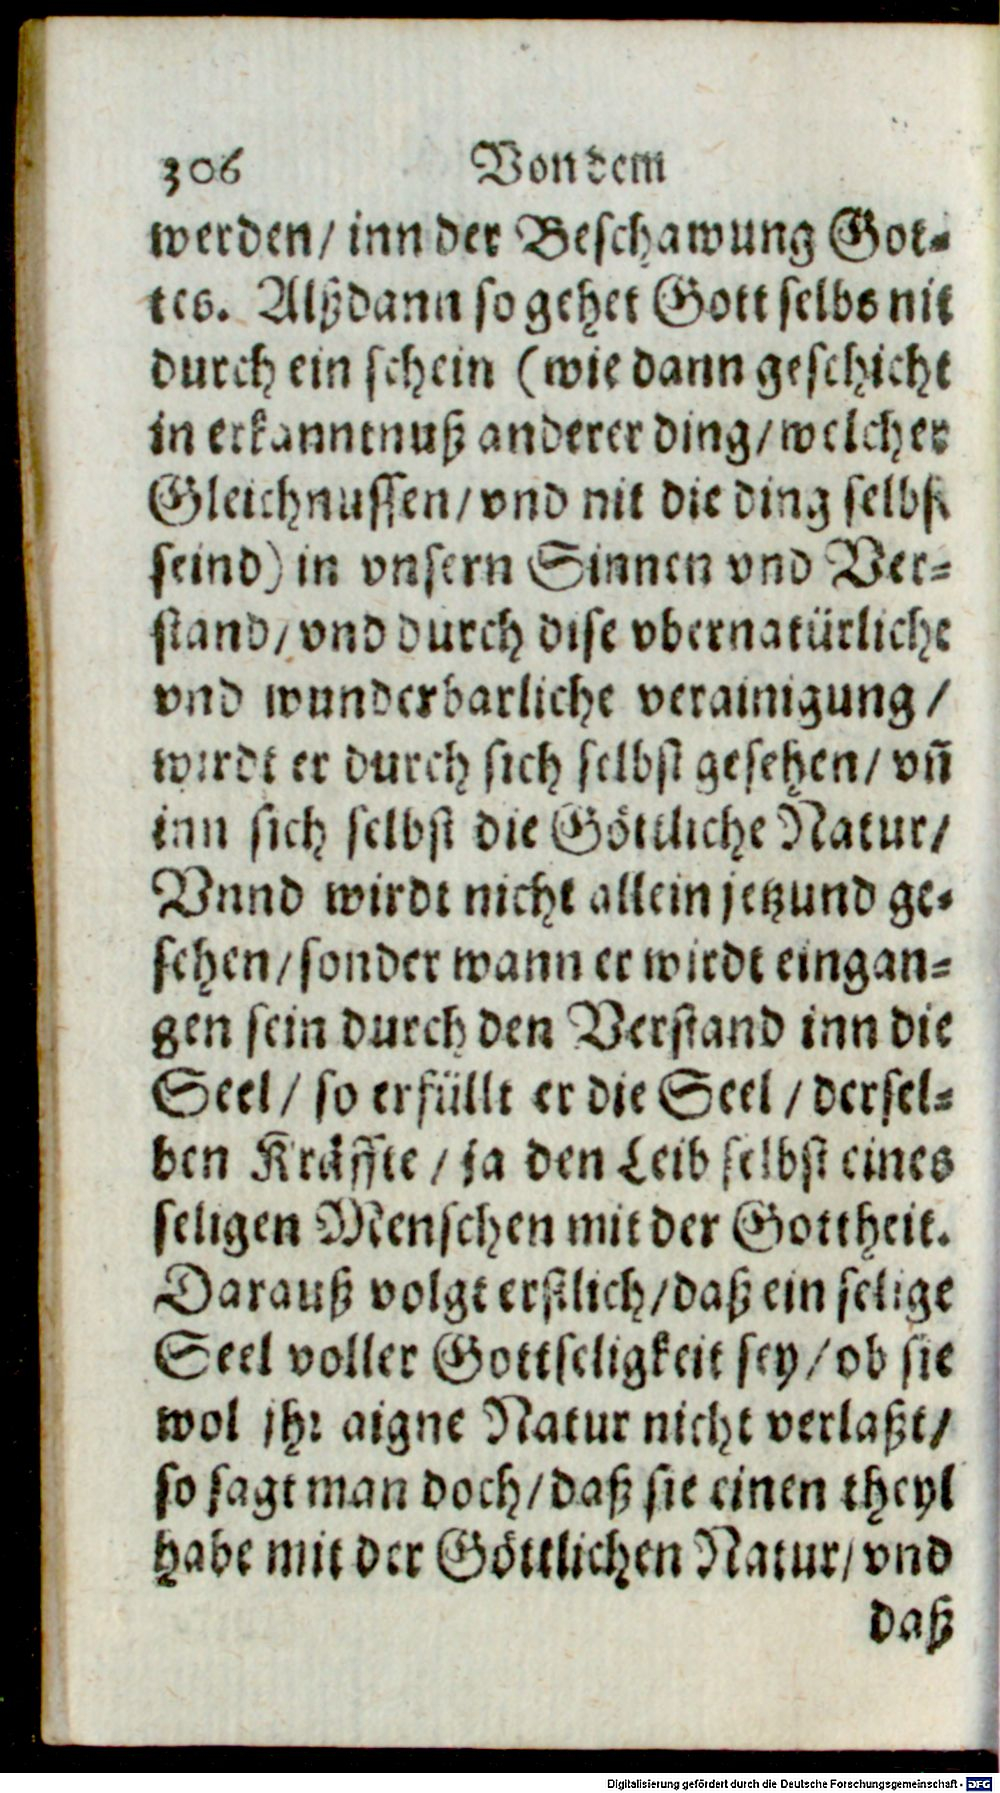 306 Von dem
werden/ inn der Beschawung Got-
tes. Alßdann so gehet Gott selbs nit
durch ein schein (wie dann geschicht
in erkanntnuß anderer ding/ welcher
Gleichnussen/ vnd nit die ding selbst
seind) in vnsern Sinnen vnd Ver-
stand/ vnd durch dise vbernatürliche
vnd wunderbarliche verainigung/
wirdt er durch sich selbst gesehen/ vñ
inn sich selbst die Göttliche Natur/
Vnnd wirdt nicht allein jetzund ge-
sehen/ sonder wann er wirdt eingan-
gen sein durch den Verstand inn die
Seel/ so erfüllt er die Seel/ dersel-
ben Kräffte/ ja den Leib selbst eines
seligen Menschen mit der Gottheit.
Darauß volgt erstlich/ daß ein selige
Seel voller Gottseligkeit sey/ ob sie
wol jhr aigne Natur nicht verlaßt/
so sagt man doch/ daß sie einen theyl
habe mit der Göttlichen Natur/ vnd
daß
Digitalisierung gefördert durch die Deutsche Forschungsgemeinschaft - DFG